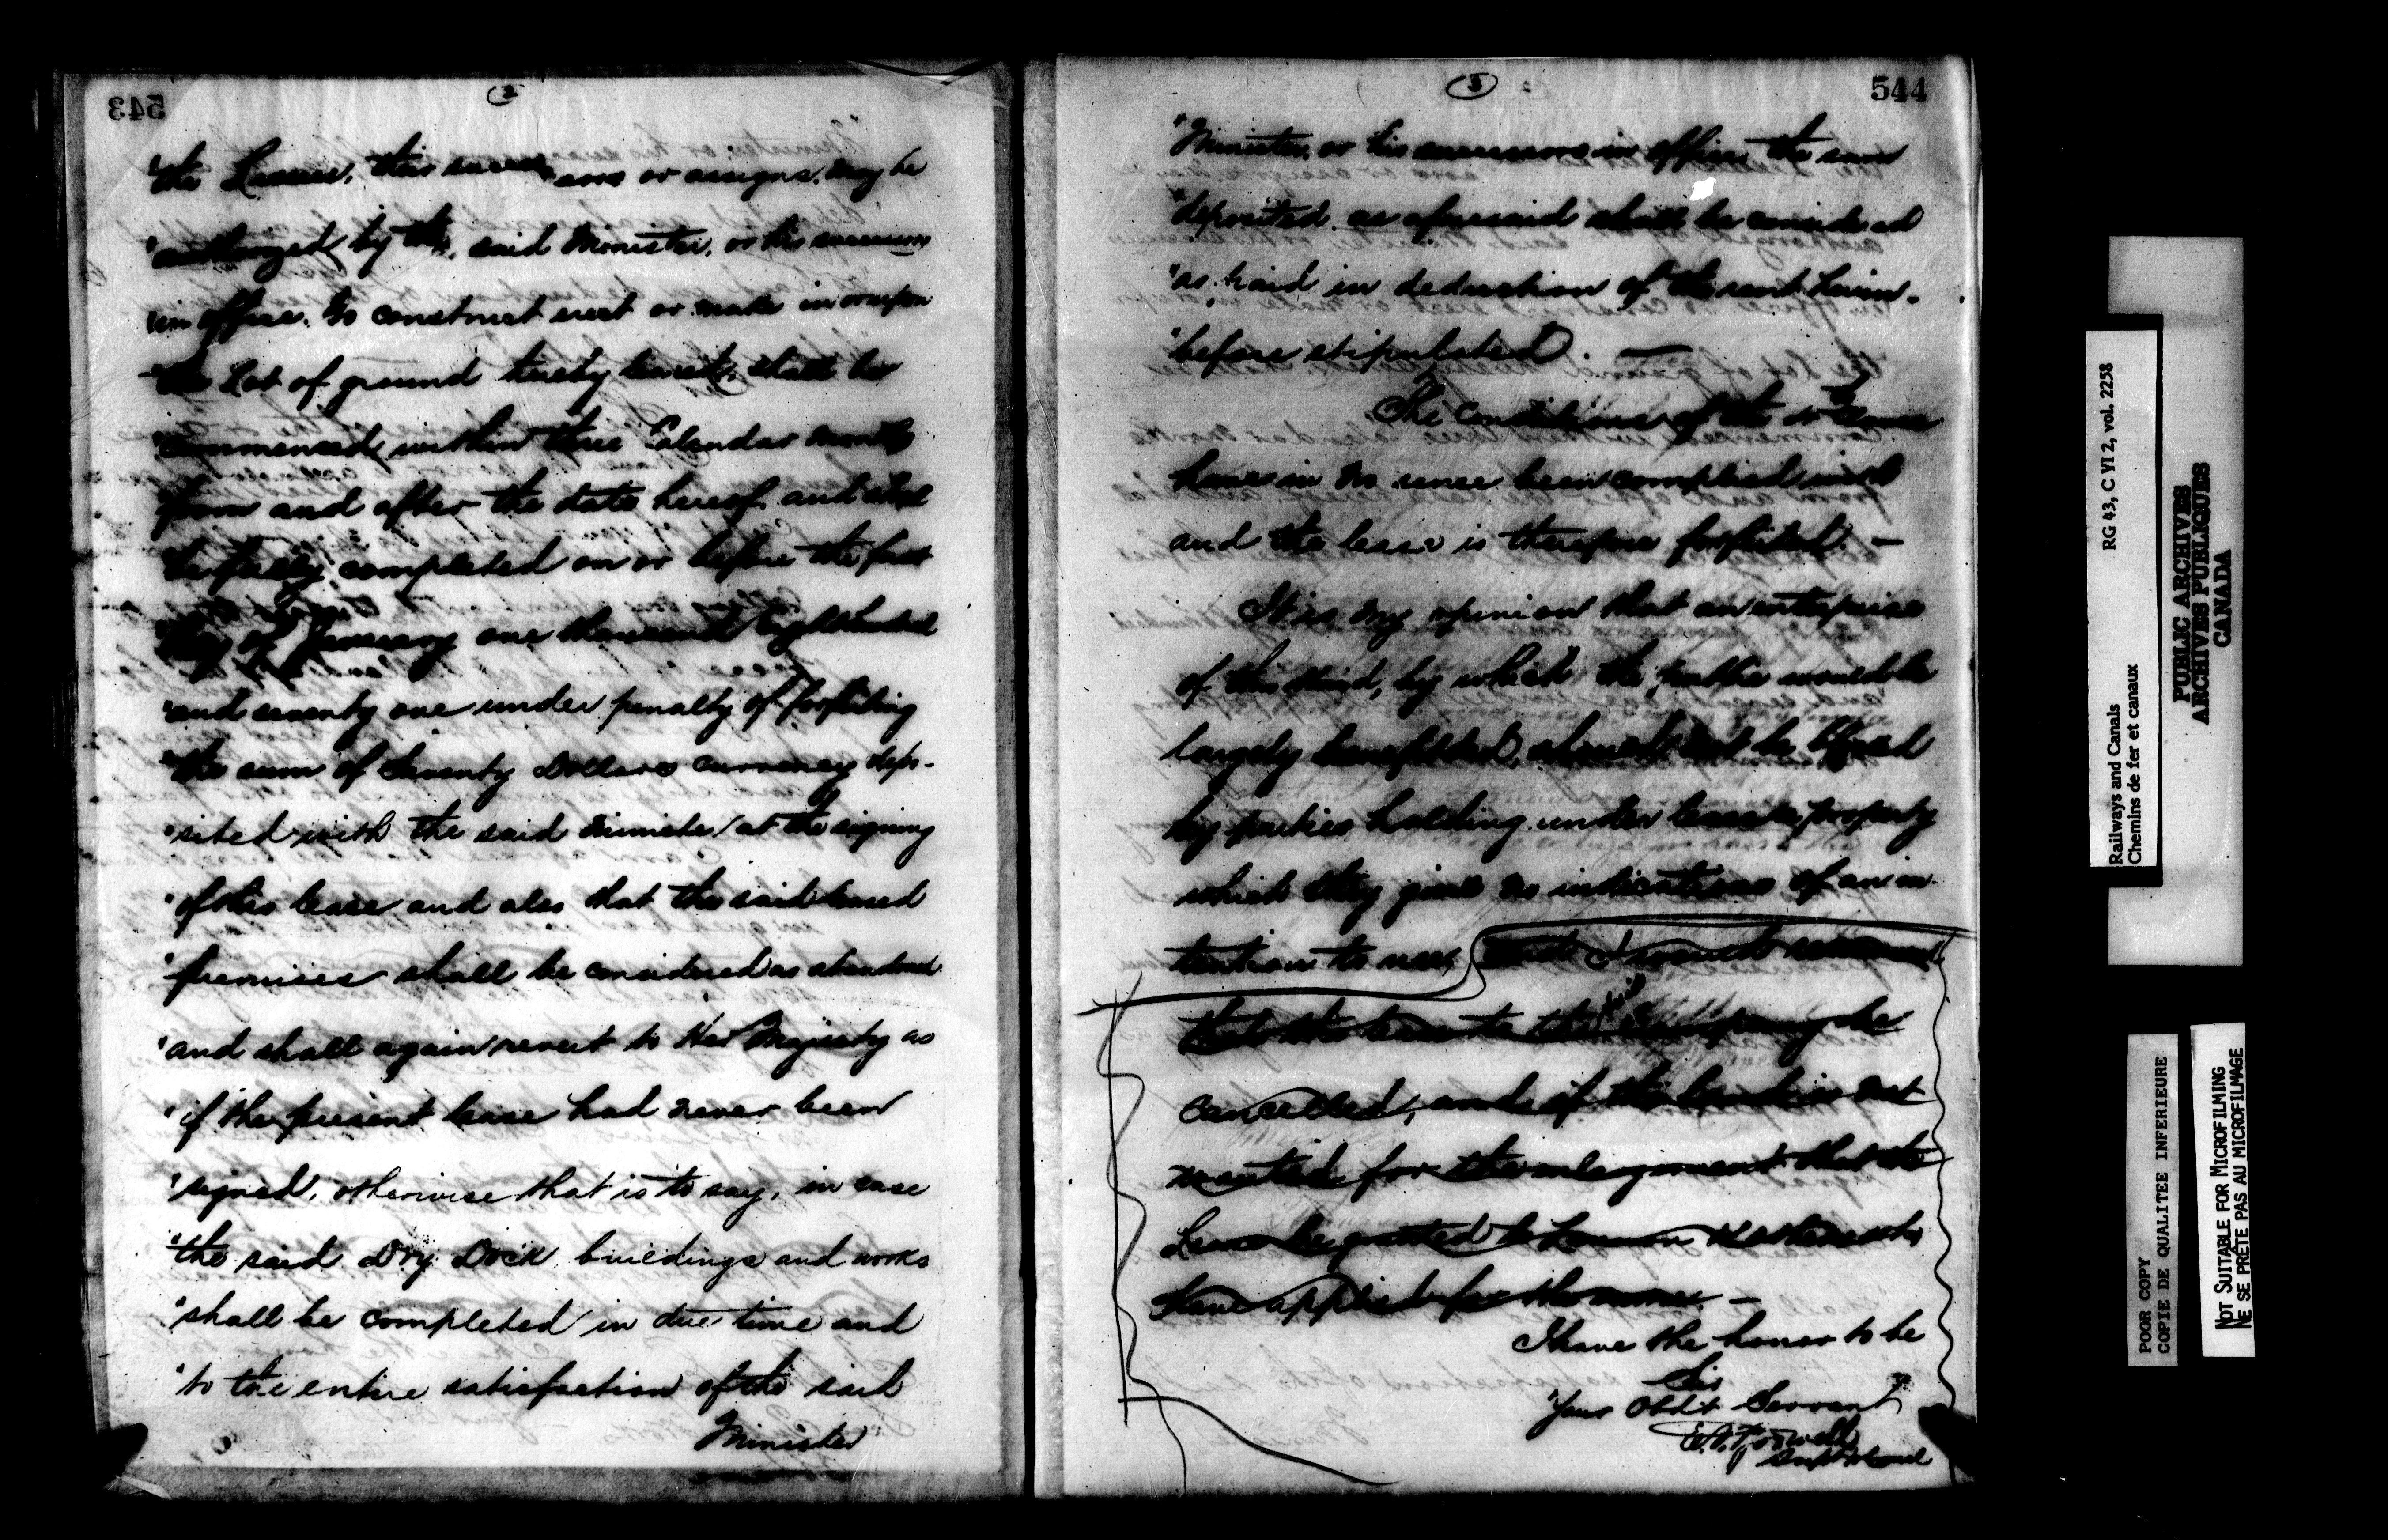 543
4
"the Lessees, their succes-
sors or assigns, may be
"authorized by the, said Minister, or his successors
"in office. to construct erect or make in or upon
"the Lot of ground hereby leased, shall be
"commenced within three Calendar months
"from and after the date hereof and shall
"be fully completed on or before the first
"day of January one thousand Eight hundred
"and seventy one under penalty of forfeiting
"the sum of Seventy Dollars currency depo-
"sited with the said Minister at the signing
"of this lease and also that the said leased
"premises shall be considered as abandoned
"and shall again revert to Her Majesty as
"if the present lease had never been
"signed, otherwise that is to say, in case
"the said Dry Dock, buildings and works
"shall be completed in due time and
"to the entire satisfaction of the said
Minister
5
544
"Minister, or his successors in office, the sum
"deposited as aforesaid shall be considered
"as paid in deduction of the rent herein-
"before stipulated". —
The Conditions of the Lease
have in no sense been complied with
and the lease is therefore forfeited. —
It is my opinion that an enterprise
of this kind, by which the public would be
largely benefitted, should not be
by parties holding under lease a property
which they give no indications of an in-
tention to use, and I would recommend
that the lease to the Company be
cancelled, and if the land is not
wanted for the enlargement that the
Lease be granted to who
have applied for the same. —
I have the honor to be
Sir
Your Obdt Servant
Supt
Railways and Canals
Chemins de fer et canaux
RG 43, C VI 2, vol. 2258
PUBLIC ARCHIVES
ARCHIVES PUBLIQUES
CANADA
POOR COPY
COPIE DE QUALITEE INFERIEURE
NOT SUITABLE FOR MICROFILMING
NE SE PRÊTE PAS AU MICROFILMAGE